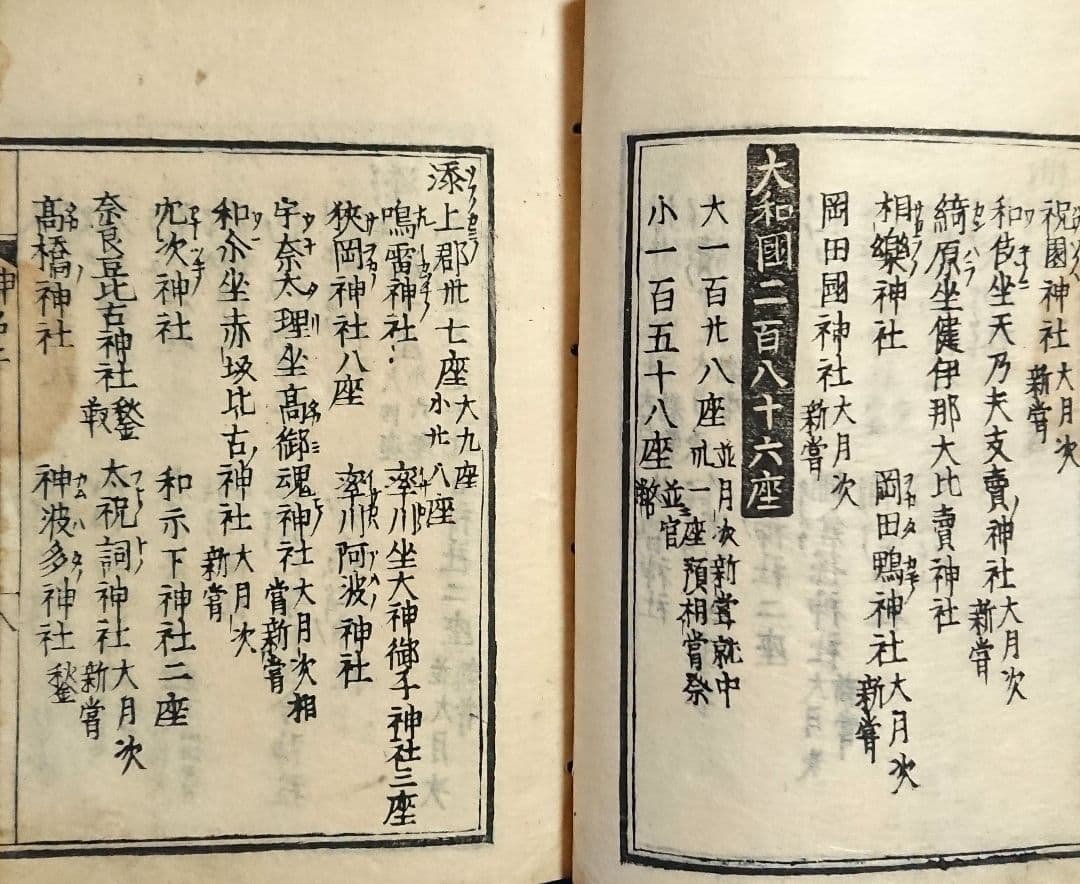 祝園神社大月次新嘗
和伎坐天乃夫支賣神社大月次新嘗
綺原坐健伊那大比賣神社
相樂神社 岡田鴨神社大月次新嘗
岡田國神社大月次新嘗
大和國二百八十六座
大一百廿八座並月次新嘗就中卅一座預相嘗祭
小一百五十八座並官幣
添上郡卅七座大九座小廿八座
鳴雷神社 率川坐大神御子神社三座
狹岡神社八座 率川阿波神社
宇奈太理坐高御魂神社大月次相嘗新嘗
和尒坐赤坂比古神社大月次新嘗
穴次神社 和尒下神社二座
奈良豆比古神社鍬靫 太祝詞神社大月次新嘗
高橋神社 神波多神社鍬